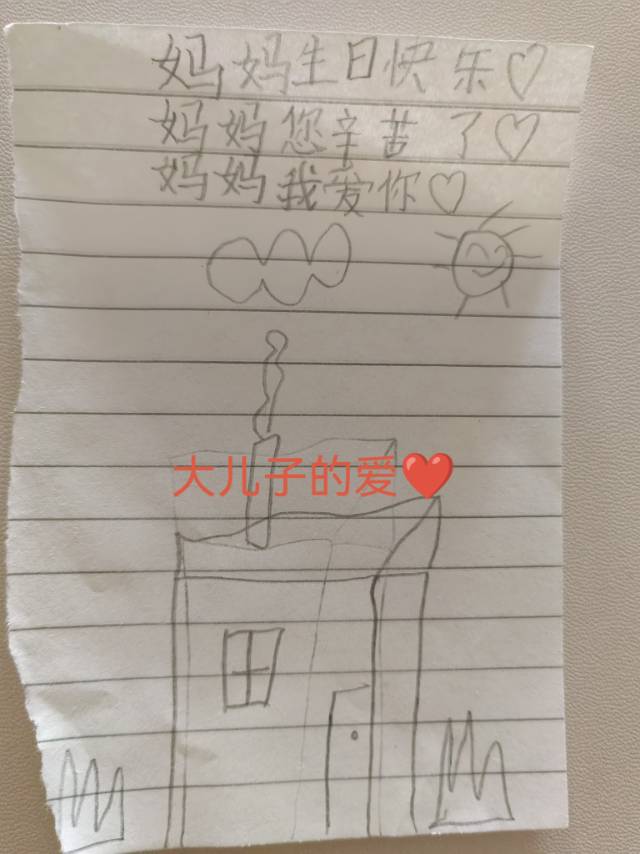 妈妈生日快乐♡
妈妈您辛苦了♡
妈妈我爱你♡
大儿子的爱❤️